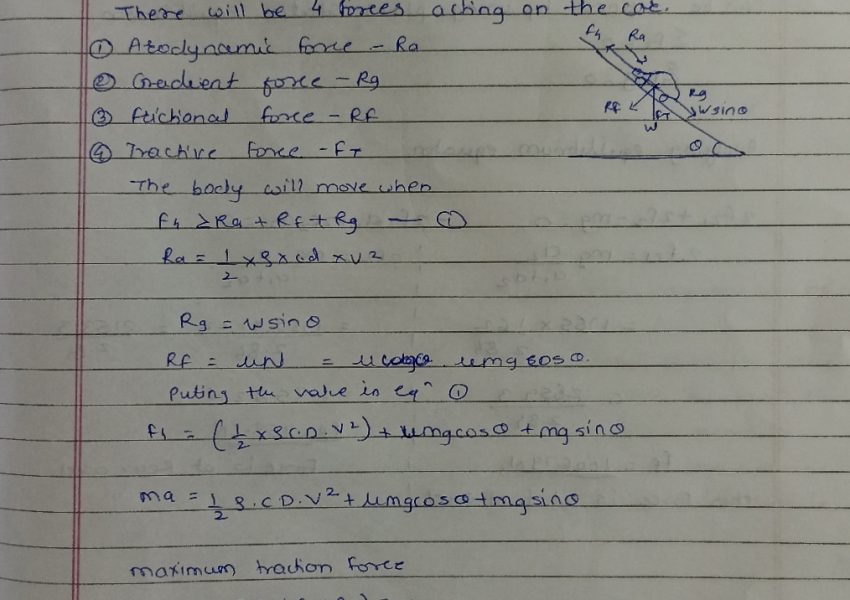 There will be 4 forces acting on the car.
① Aerodynamic force - Ra
② Gradient force - Rg
③ frictional force - Rf
④ Tractive Force - FT
F4 Ra
Rg
Rf
FT
W
Wsinθ
θ
The body will move when
F4 ≥ Ra + Rf + Rg — ①
Ra = 1/2 × ρ × cd × V²
Rg = Wsinθ
Rf = μN = μmg cosθ.
Puting the value in eqⁿ ①
F4 = (1/2 × ρ C.D. V²) + μmgcosθ + mg sinθ
ma = 1/2 ρ. C D. V² + μmgcosθ + mg sinθ
maximum traction force